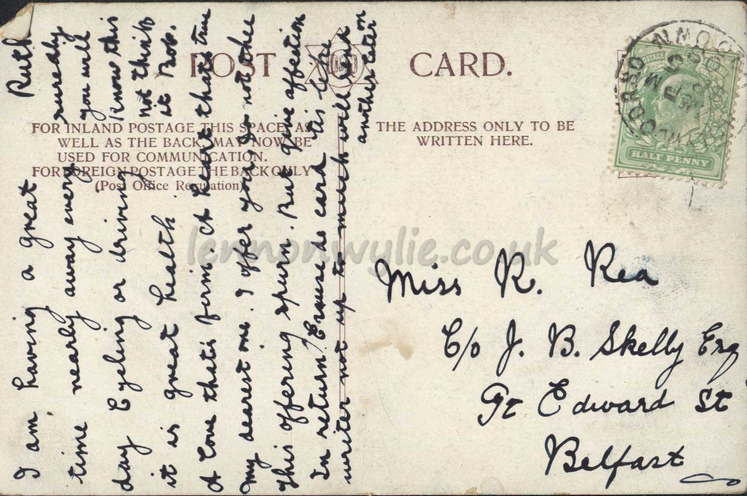 I am having a great
time nearly away every
day Cycling or driving
it is great health
A love thats firm A heart thats true
my dearest one. I offer you, Do not thee
this offering spurn. But give affection
In return. Excuse de card tis late
writer not up to much will send
another later on
Ruth
you will
know this
not think
it Bob.
POST CARD.
FOR INLAND POSTAGE THIS SPACE, AS
WELL AS THE BACK, MAY NOW BE
USED FOR COMMUNICATION.
FOR FOREIGN POSTAGE THE BACK ONLY
(Post Office Regulation)
THE ADDRESS ONLY TO BE
WRITTEN HERE.
HALF PENNY
lennonwylie.co.uk
Miss R. Rea
C/o J. B. Skelly Esq
Gt Edward St
Belfast